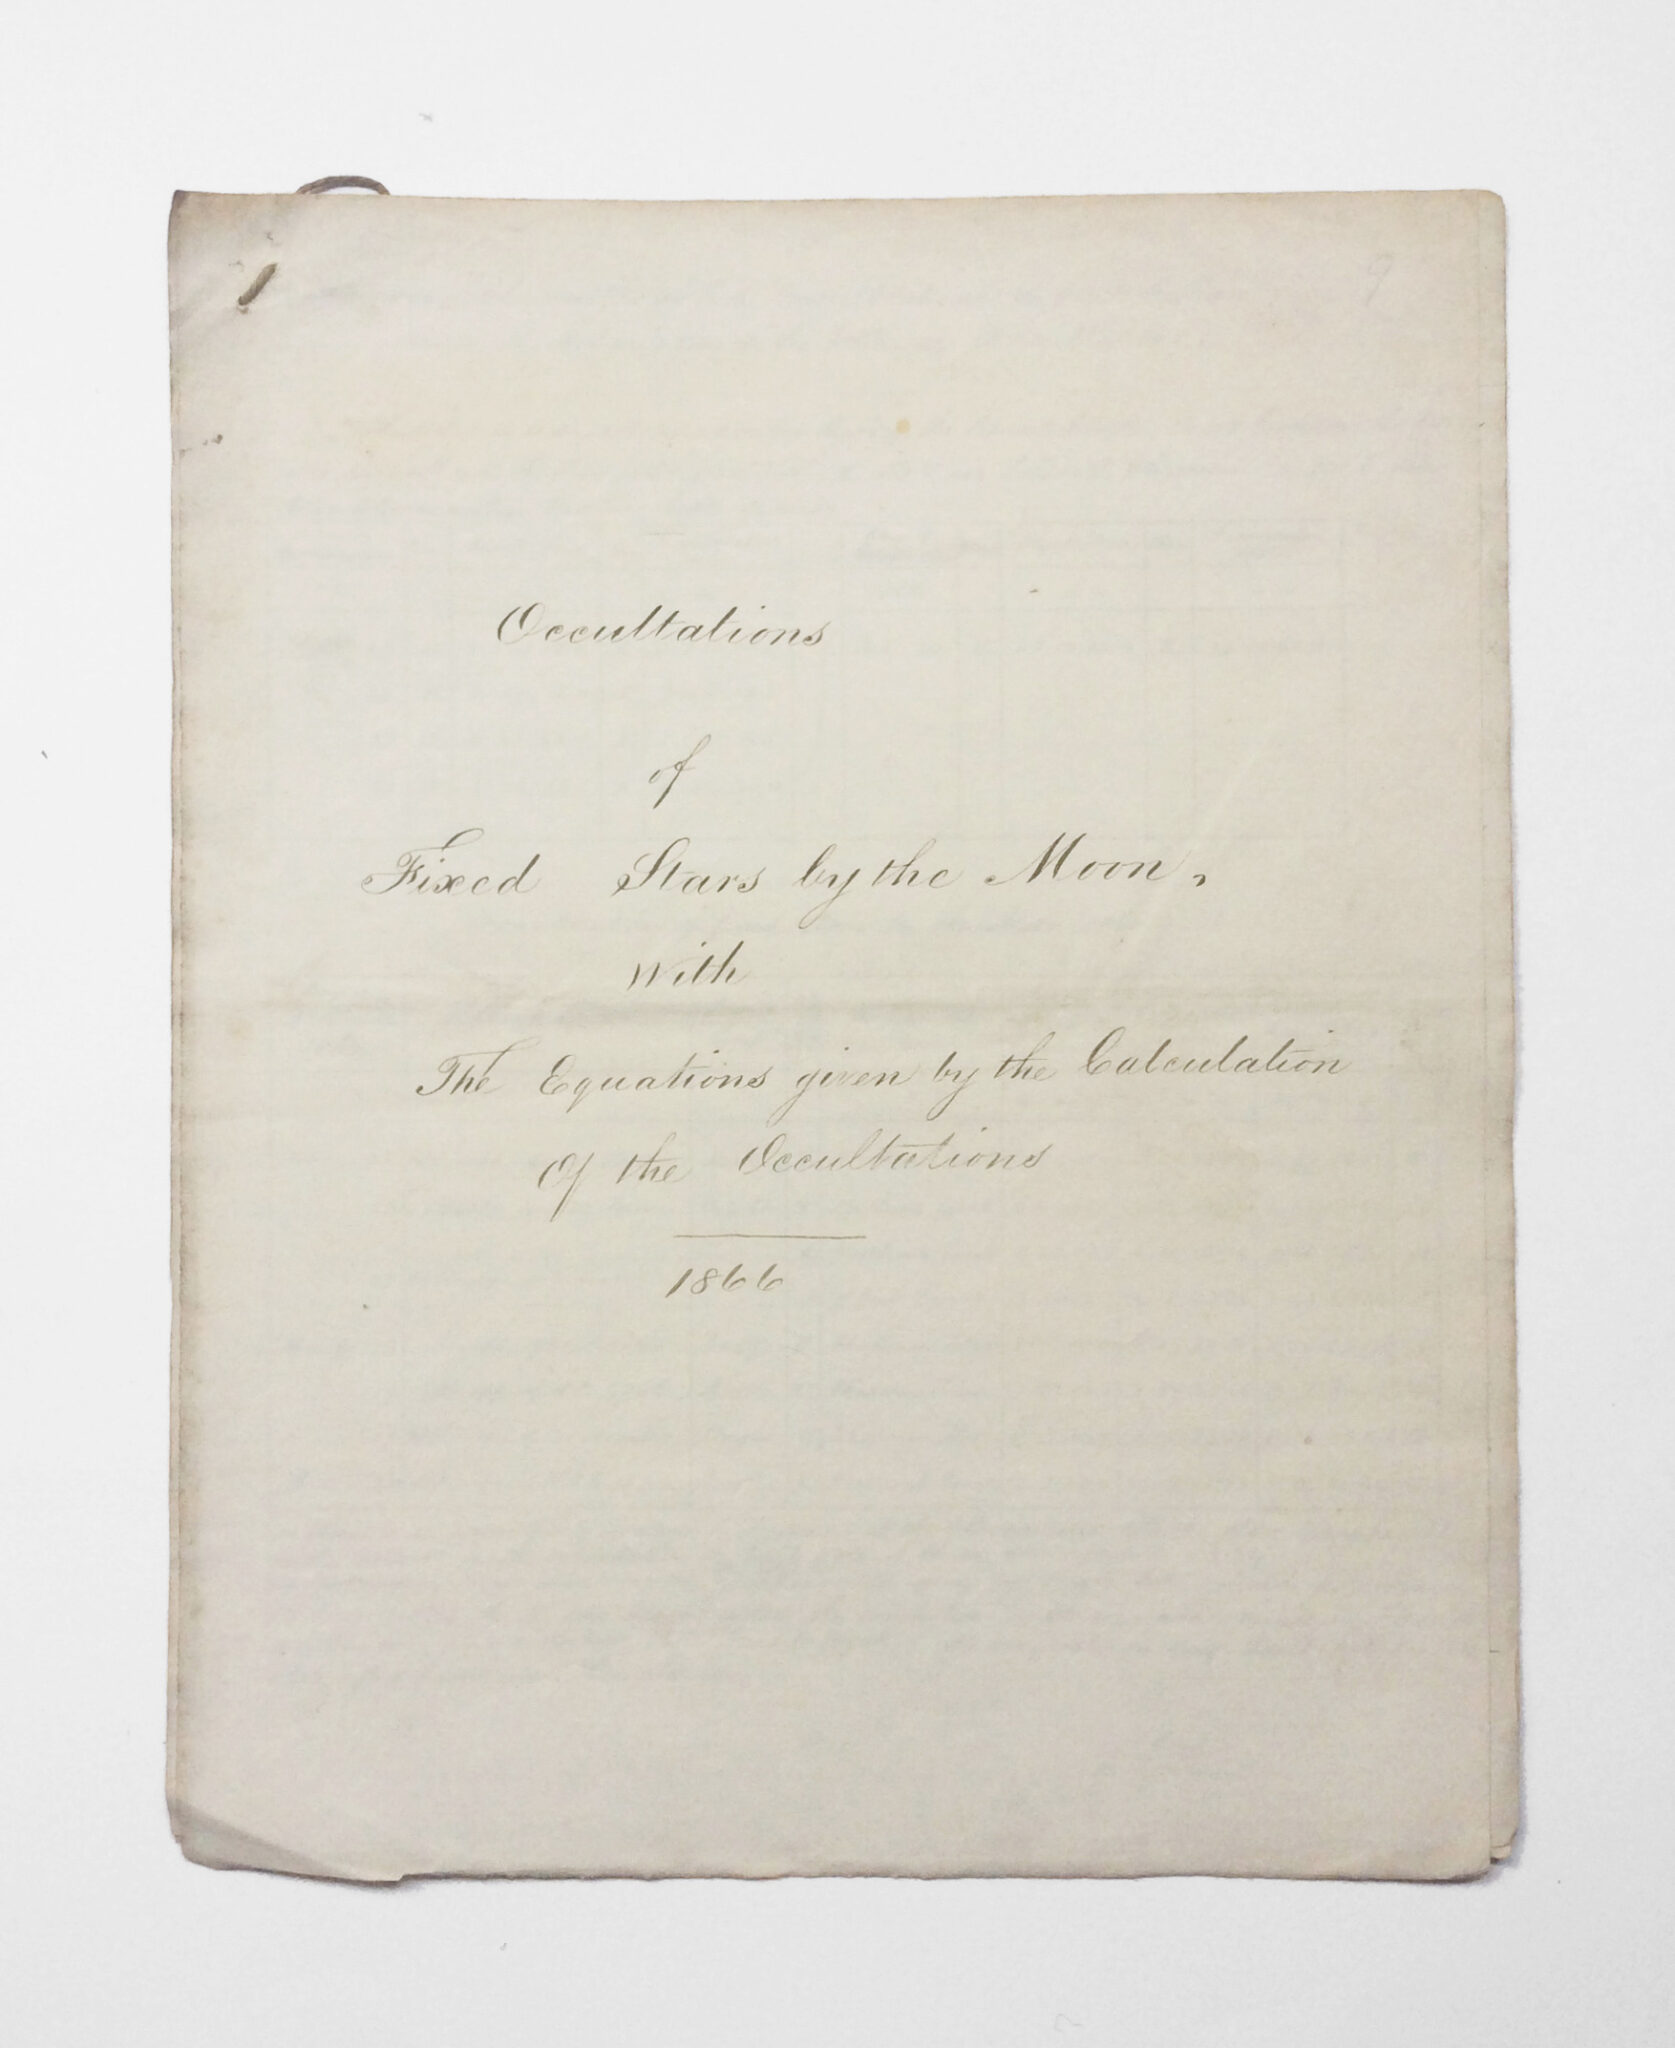 9
Occultations
of
Fixed Stars by the Moon,
With
The Equations given by the Calculation
Of the Occultations
1866